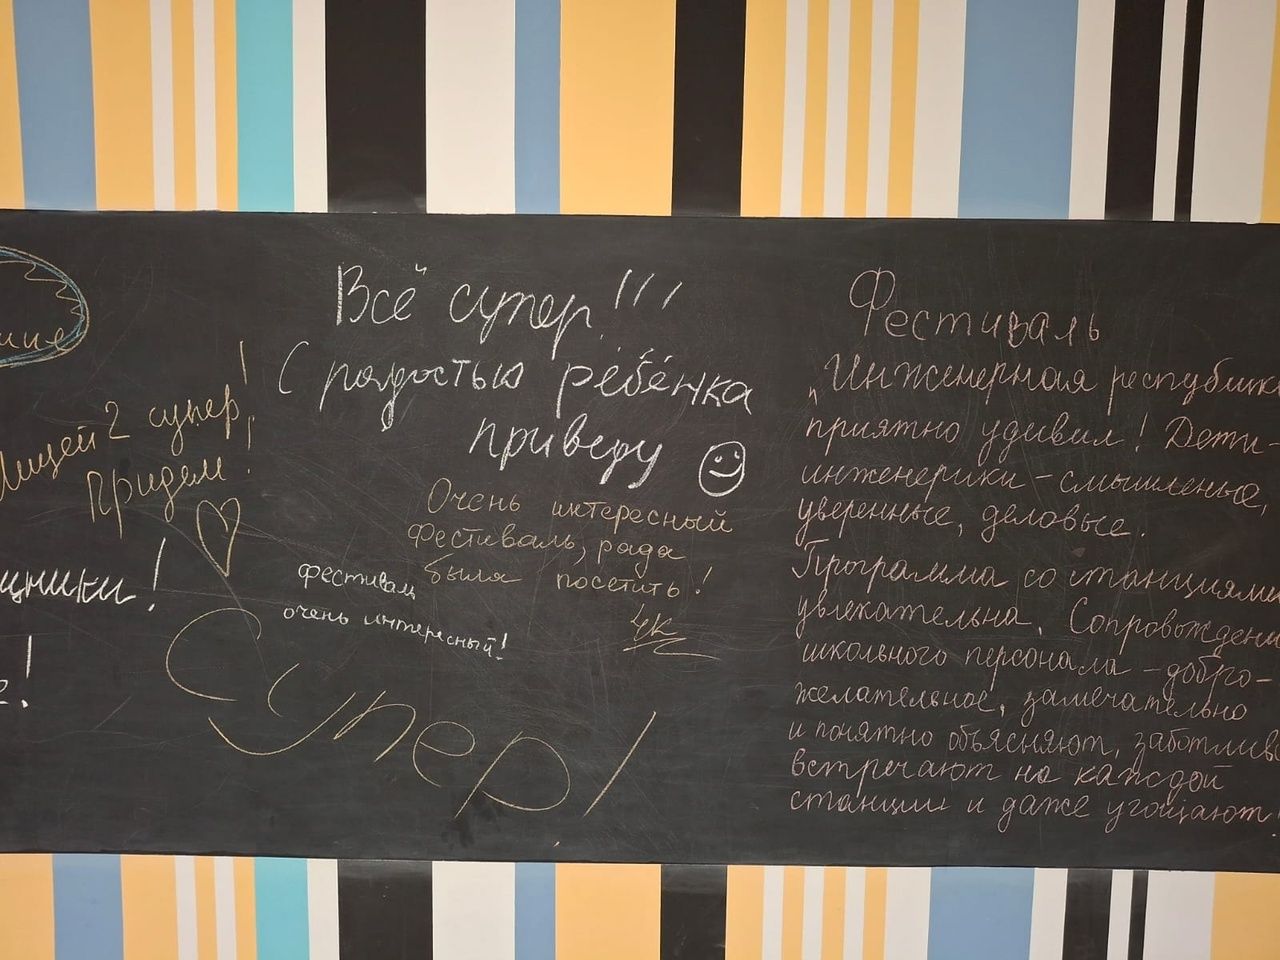 Лицей 2 супер!
Придем!
!
!
Всё супер!!!
С радостью ребёнка
приведу
Очень интересный
фестиваль, рада
была посетить!
фестиваль
очень интересный!
Супер!
Фестиваль
„Инженерная республика
приятно удивил! Дети-
инженерики - смышленые,
уверенные, деловые.
Программа со станциями
увлекательна. Сопровождение
школьного персонала - добро-
желательное, замечательно
и понятно объясняют, заботливо
встречают на каждой
станции и даже угощают!